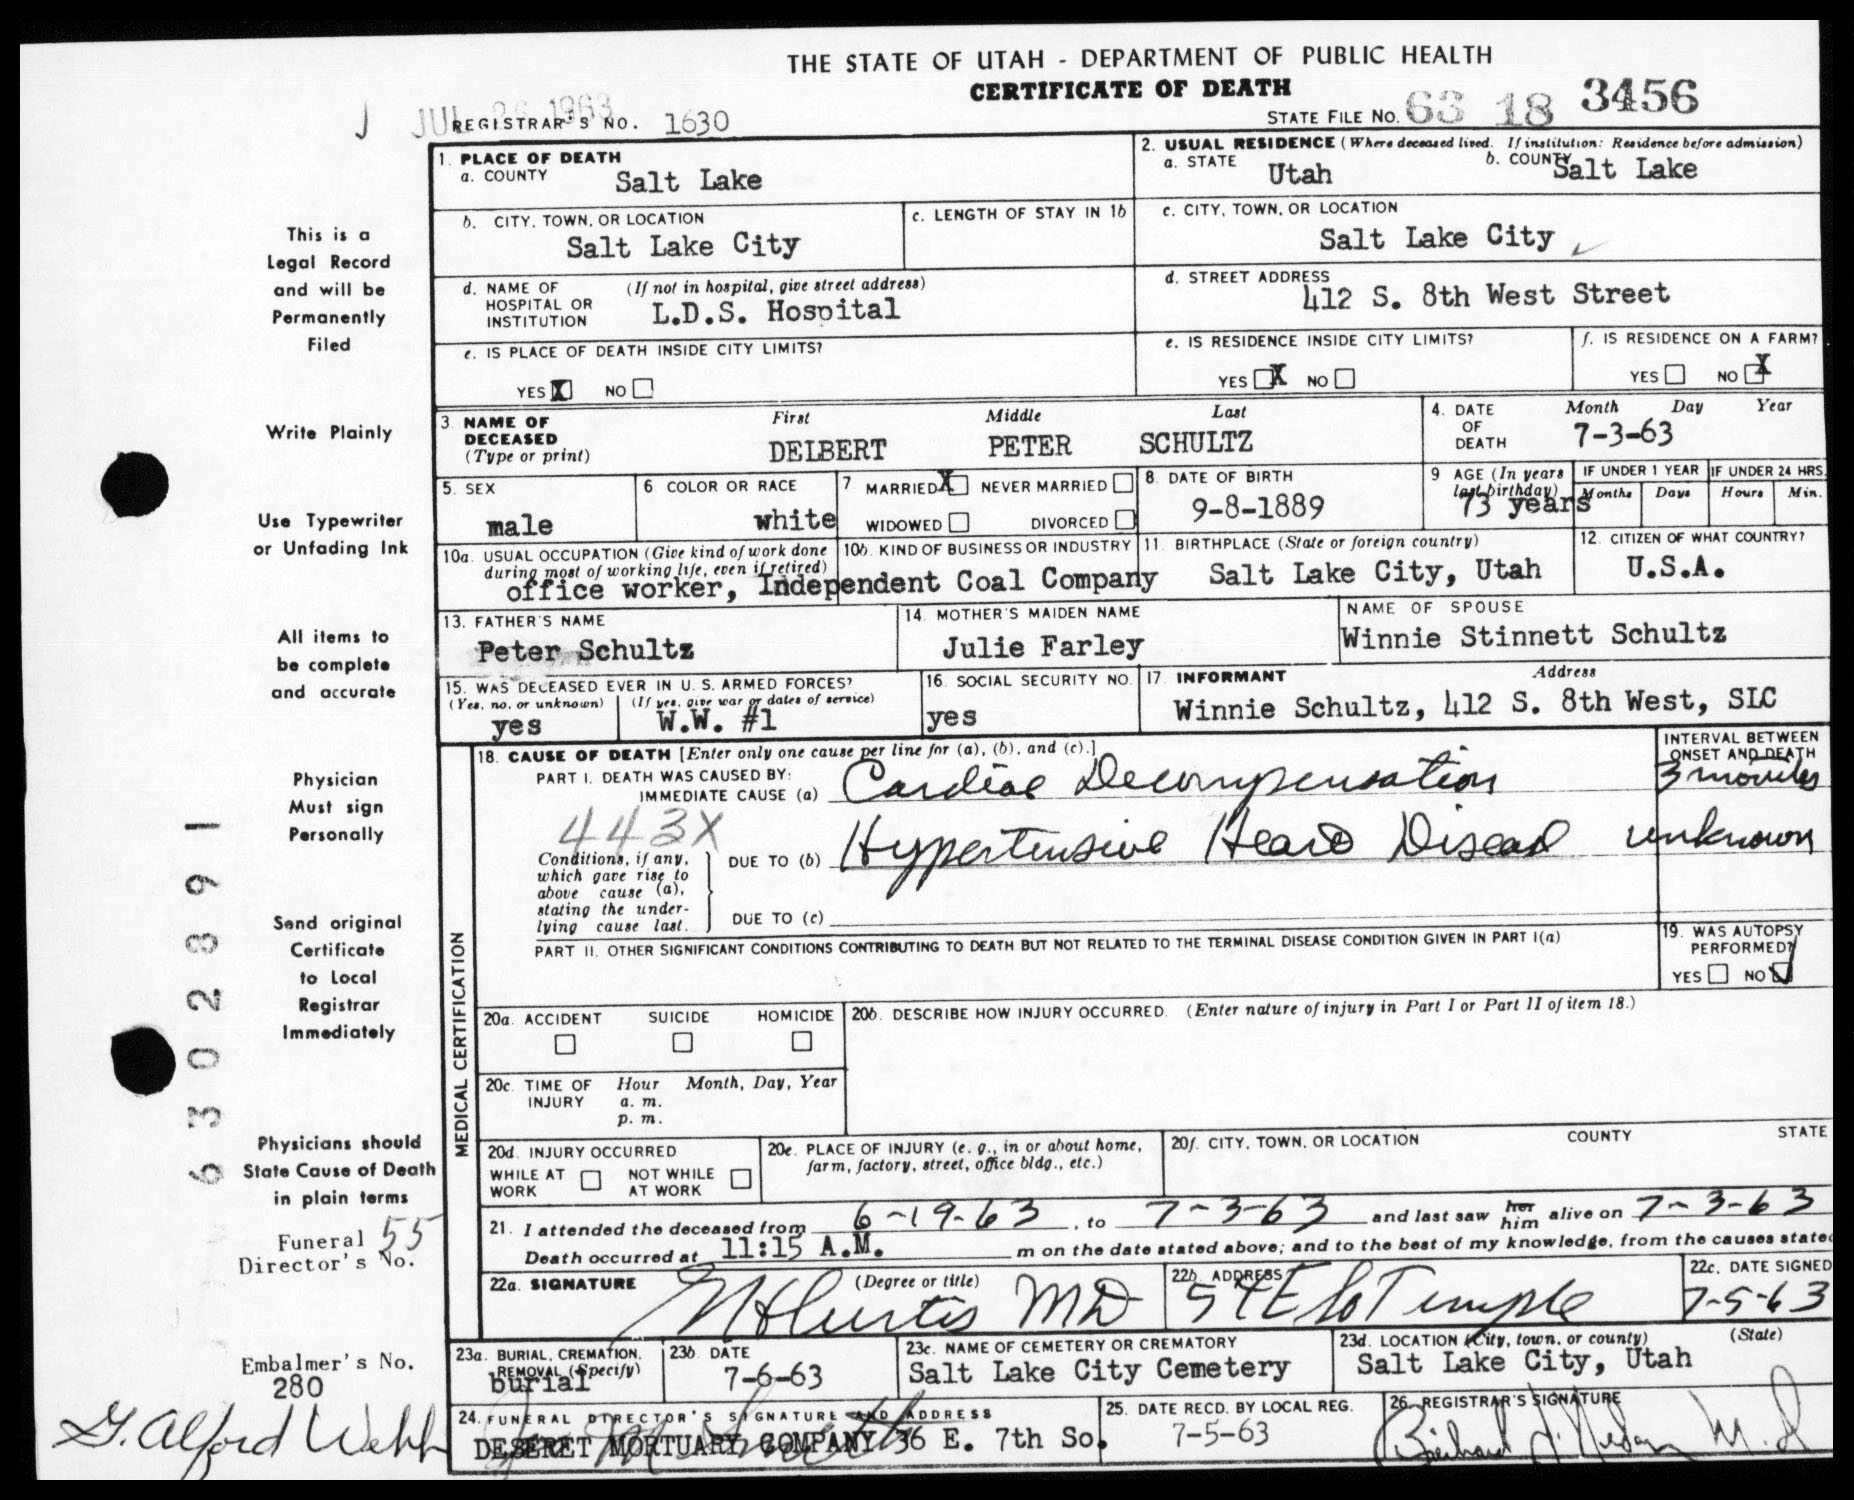 THE STATE OF UTAH - DEPARTMENT OF PUBLIC HEALTH
CERTIFICATE OF DEATH
J JUL 26 1963
REGISTRAR'S NO. 1630
STATE FILE NO. 63 18 3456
1. PLACE OF DEATH
a. COUNTY Salt Lake
2. USUAL RESIDENCE (Where deceased lived. If institution: Residence before admission)
a. STATE Utah b. COUNTY Salt Lake
b. CITY, TOWN, OR LOCATION
Salt Lake City
c. LENGTH OF STAY IN 1b
c. CITY, TOWN, OR LOCATION
Salt Lake City
d. NAME OF HOSPITAL OR INSTITUTION (If not in hospital, give street address)
L.D.S. Hospital
d. STREET ADDRESS
412 S. 8th West Street
e. IS PLACE OF DEATH INSIDE CITY LIMITS?
YES X NO
e. IS RESIDENCE INSIDE CITY LIMITS?
YES X NO
f. IS RESIDENCE ON A FARM?
YES NO X
3. NAME OF DECEASED (Type or print)
First Middle Last
DELBERT PETER SCHULTZ
4. DATE OF DEATH
Month Day Year
7-3-63
5. SEX
male
6 COLOR OR RACE
white
7 MARRIED X NEVER MARRIED
WIDOWED DIVORCED
8. DATE OF BIRTH
9-8-1889
9 AGE (In years last birthday)
73 years
IF UNDER 1 YEAR
Months Days
IF UNDER 24 HRS.
Hours Min.
10a. USUAL OCCUPATION (Give kind of work done during most of working life, even if retired)
10b. KIND OF BUSINESS OR INDUSTRY
office worker, Independent Coal Company
11. BIRTHPLACE (State or foreign country)
Salt Lake City, Utah
12. CITIZEN OF WHAT COUNTRY?
U.S.A.
13. FATHER'S NAME
Peter Schultz
14. MOTHER'S MAIDEN NAME
Julie Farley
NAME OF SPOUSE
Winnie Stinnett Schultz
15. WAS DECEASED EVER IN U. S. ARMED FORCES?
(Yes, no, or unknown) (If yes, give war or dates of service)
yes W.W. #1
16. SOCIAL SECURITY NO.
yes
17. INFORMANT Address
Winnie Schultz, 412 S. 8th West, SLC
MEDICAL CERTIFICATION
18. CAUSE OF DEATH [Enter only one cause per line for (a), (b), and (c).]
INTERVAL BETWEEN ONSET AND DEATH
PART I. DEATH WAS CAUSED BY:
IMMEDIATE CAUSE (a) Cardiac Decompensation 3 months
443X
Conditions, if any, which gave rise to above cause (a), stating the underlying cause last.
DUE TO (b) Hypertensive Heart Disease unknown
DUE TO (c)
PART II. OTHER SIGNIFICANT CONDITIONS CONTRIBUTING TO DEATH BUT NOT RELATED TO THE TERMINAL DISEASE CONDITION GIVEN IN PART I(a)
19. WAS AUTOPSY PERFORMED?
YES NO ✓
20a. ACCIDENT SUICIDE HOMICIDE
20b. DESCRIBE HOW INJURY OCCURRED. (Enter nature of injury in Part I or Part II of item 18.)
20c. TIME OF INJURY
Hour Month, Day, Year
a. m.
p. m.
20d. INJURY OCCURRED
WHILE AT WORK NOT WHILE AT WORK
20e. PLACE OF INJURY (e. g., in or about home, farm, factory, street, office bldg., etc.)
20f. CITY, TOWN, OR LOCATION COUNTY STATE
21. I attended the deceased from 6-19-63, to 7-3-63 and last saw her him alive on 7-3-63
Death occurred at 11:15 A.M. m on the date stated above; and to the best of my knowledge, from the causes stated
22a. SIGNATURE (Degree or title)
Curtis MD
22b. ADDRESS
54 E So Temple
22c. DATE SIGNED
7-5-63
23a. BURIAL, CREMATION, REMOVAL (Specify)
burial
23b. DATE
7-6-63
23c. NAME OF CEMETERY OR CREMATORY
Salt Lake City Cemetery
23d. LOCATION (City, town, or county) (State)
Salt Lake City, Utah
24. FUNERAL DIRECTOR'S SIGNATURE AND ADDRESS
DESERET MORTUARY COMPANY 36 E. 7th So.
25. DATE RECD. BY LOCAL REG.
7-5-63
26. REGISTRAR'S SIGNATURE
M.D.
This is a
Legal Record
and will be
Permanently
Filed
Write Plainly
Use Typewriter
or Unfading Ink
All items to
be complete
and accurate
Physician
Must sign
Personally
Send original
Certificate
to Local
Registrar
Immediately
Physicians should
State Cause of Death
in plain terms
Funeral 55
Director's No.
Embalmer's No.
280
G. Alford Webb
6302891